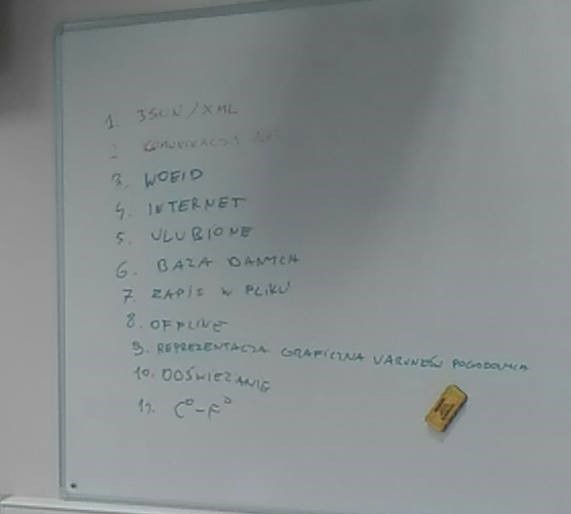 1. JSON/XML
2. KOMUNIKACJA
3. WOEID
4. INTERNET
5. ULUBIONE
6. BAZA DANYCH
7. ZAPIS W PLIKU
8. OFFLINE
9. REPREZENTACJA GRAFICZNA WARUNKÓW POGODOWYCH
10. ODŚWIEŻANIE
11. C°-F°